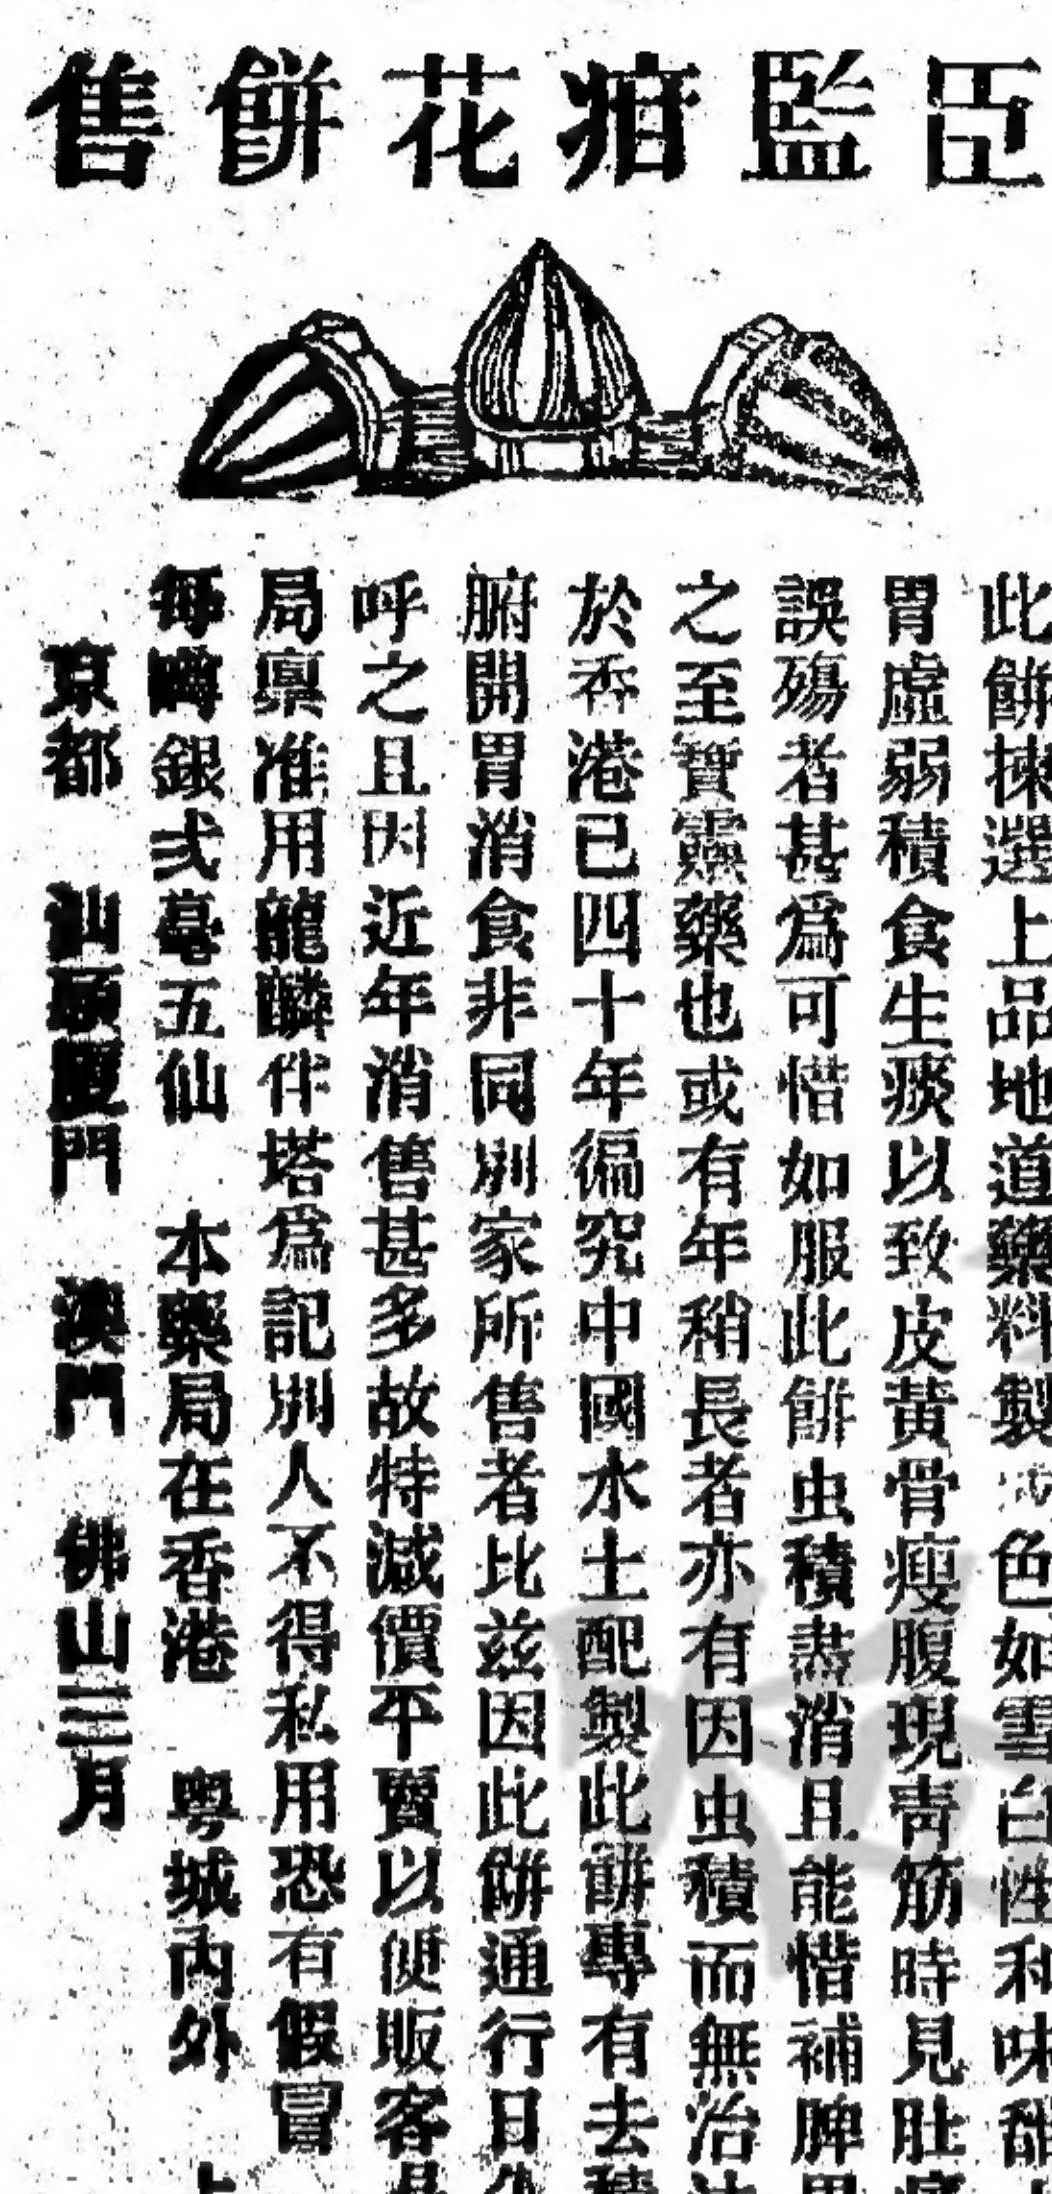 臣監疳花餅售
此餅揀選上品地道藥料製 色如雪白性和味
胃虛弱積食生痰以致皮黃骨瘦腹現靑筋時見肚
誤殤者甚爲可惜如服此餅虫積盡消且能惜補脾胃
之至寶靈藥也或有年稍長者亦有因虫積而無治法
於香港已四十年徧究中國水土配製此餅專有去積
腑開胃消食非同別家所售者比兹因此餅通行日久
呼之且因近年消售甚多故特減價平賣以便販客
局禀准用龍麟伴塔爲記別人不得私用恐有假冒
每嚩銀弍毫五仙 本藥局在香港 粵城內外 上
京都 汕頭厦門 澳門 佛山三月